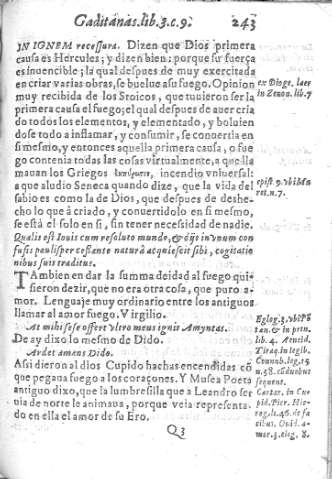 Gaditanas. lib. 3. c. 9.
243
IN IGNEM recessura. Dizen que Dios primera
causa es Hercules; y dizen bien: porque su fuerça
es inuencible; la qual despues de muy exercitada
en criar varias obras, se buelue a su fuego. Opinion
muy recibida de los Stoicos, que tuuieron ser la
primera causa el fuego; el qual despues de auer cria
do todos los elementos, y elementado, y boluien
dose todo a inflamar, y consumir, se conuertia en
si mesmo, y entonces aquella primera causa, o fue
go contenia todas las cosas virtualmente, a quella
mauan los Griegos incendio vniuersal:
a que aludio Seneca quando dize, que la vida del
sabio es como la de Dios, que despues de deshe-
cho lo que à criado, y conuertidolo en si mesmo,
se està el solo en si, sin tener necesidad de nadie.
Qualis est Iouis cum resoluto mundo, & dijs in vnum con
fusis paulisper cessante natura acquiescit sibi, cogitatio
nibus suis traditus.
Tambien en dar la summa deidad al fuego qui-
sieron dezir, que no era otra cosa, que puro a-
mor. Lenguaje muy ordinario entre los antiguos
llamar al amor fuego. Virgilio.
At mihi sese offert vltro meus ignis Amyntas.
De ay dixo lo mesmo de Dido.
Ardet amans Dido.
Asi dieron al dios Cupido hachas encendidas cõ
que pegaua fuego a los coraçones. Y Musea Poeta
antiguo dixo, que la lumbresilla que a Leandro ser
uia de norte le animaua, porque veia representa-
do en ella el amor de su Ero.
Q3
ex Dioge. laer
in Zenon. lib. 7
epist. 9. vbi
ret. n. 7.
Eglog. 3. vbi
tan. &r in prin.
lib. 4. Aeneid.
Tiraq. in legib.
Connub. leg. 15
n. 58.
sequent.
Cartar. in Cu-
pid. Pier. Hie-
rog. li. 46. de fa
cibus. Ovid. a-
mor. 3. eleg. 8.